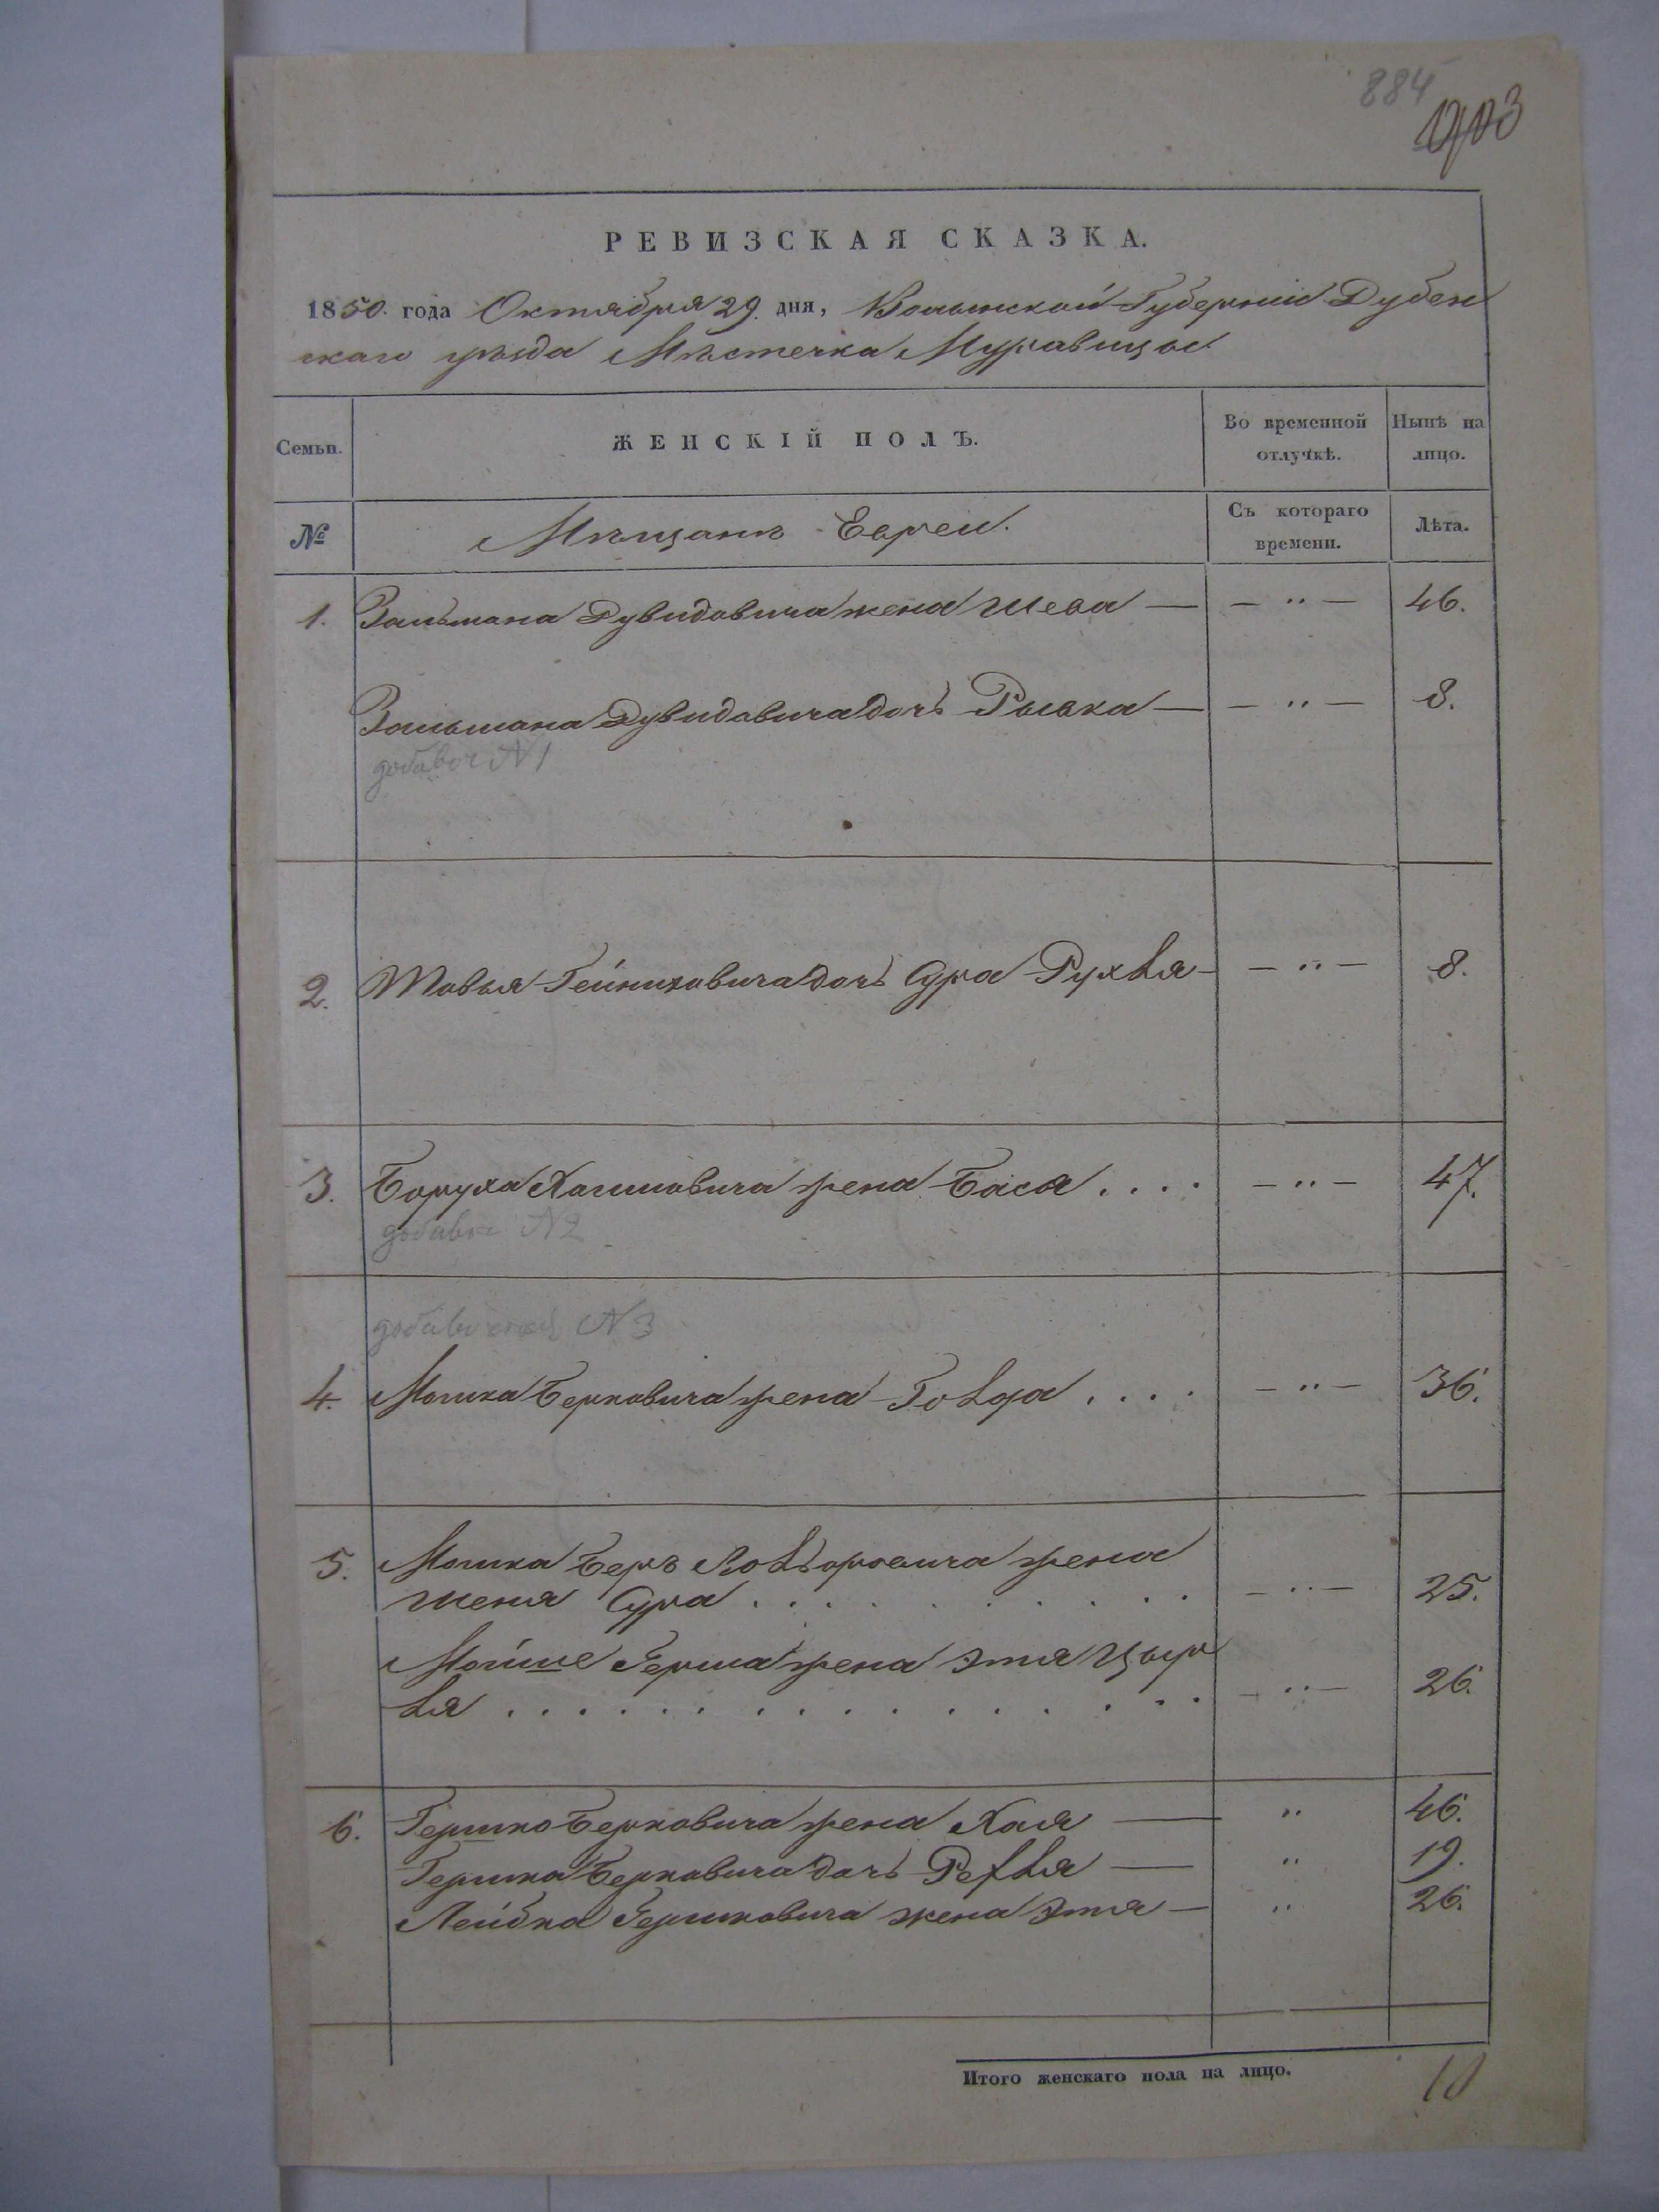 884
РЕВИЗСКАЯ СКАЗКА.
1850. года Октября 29. дня, Волынской Губерніи Дубен
скаго уѣзда Мѣстечка Муравицы.
Семьи.
ЖЕНСКІЙ ПОЛЪ.
Во временной отлучкѣ.
Нынѣ на лицо.
№
Мѣщанъ Евреи.
Съ котораго времени.
Лѣта.
1. Зальмана Дувидовича жена Шева — — " — 46.
Зальмана Дувидовича дочь Рывка — — " — 8.
добавоч N 1
2. Товья Гейниховича дочь Сура Рухля — — " — 8.
3. Боруха Хаимовича жена Бася . . . . — " — 47.
добавоч N 2
добавочная N 3
4. Мошка Берковича жена Голда . . . . — " — 36.
5. Мошка Беръ жена
Шеня Сура . . . . . . . . . . — " — 25.
Мойше Герша жена Этя Цыр
ля . . . . . . . . . . . . . . — " — 26.
6. Гершко Берковича жена Хая — " 46.
Гершка Берковича дочь Рейля — " 19.
Лейбка Гершковича жена Этя — " 26.
Итого женскаго пола на лицо. 10